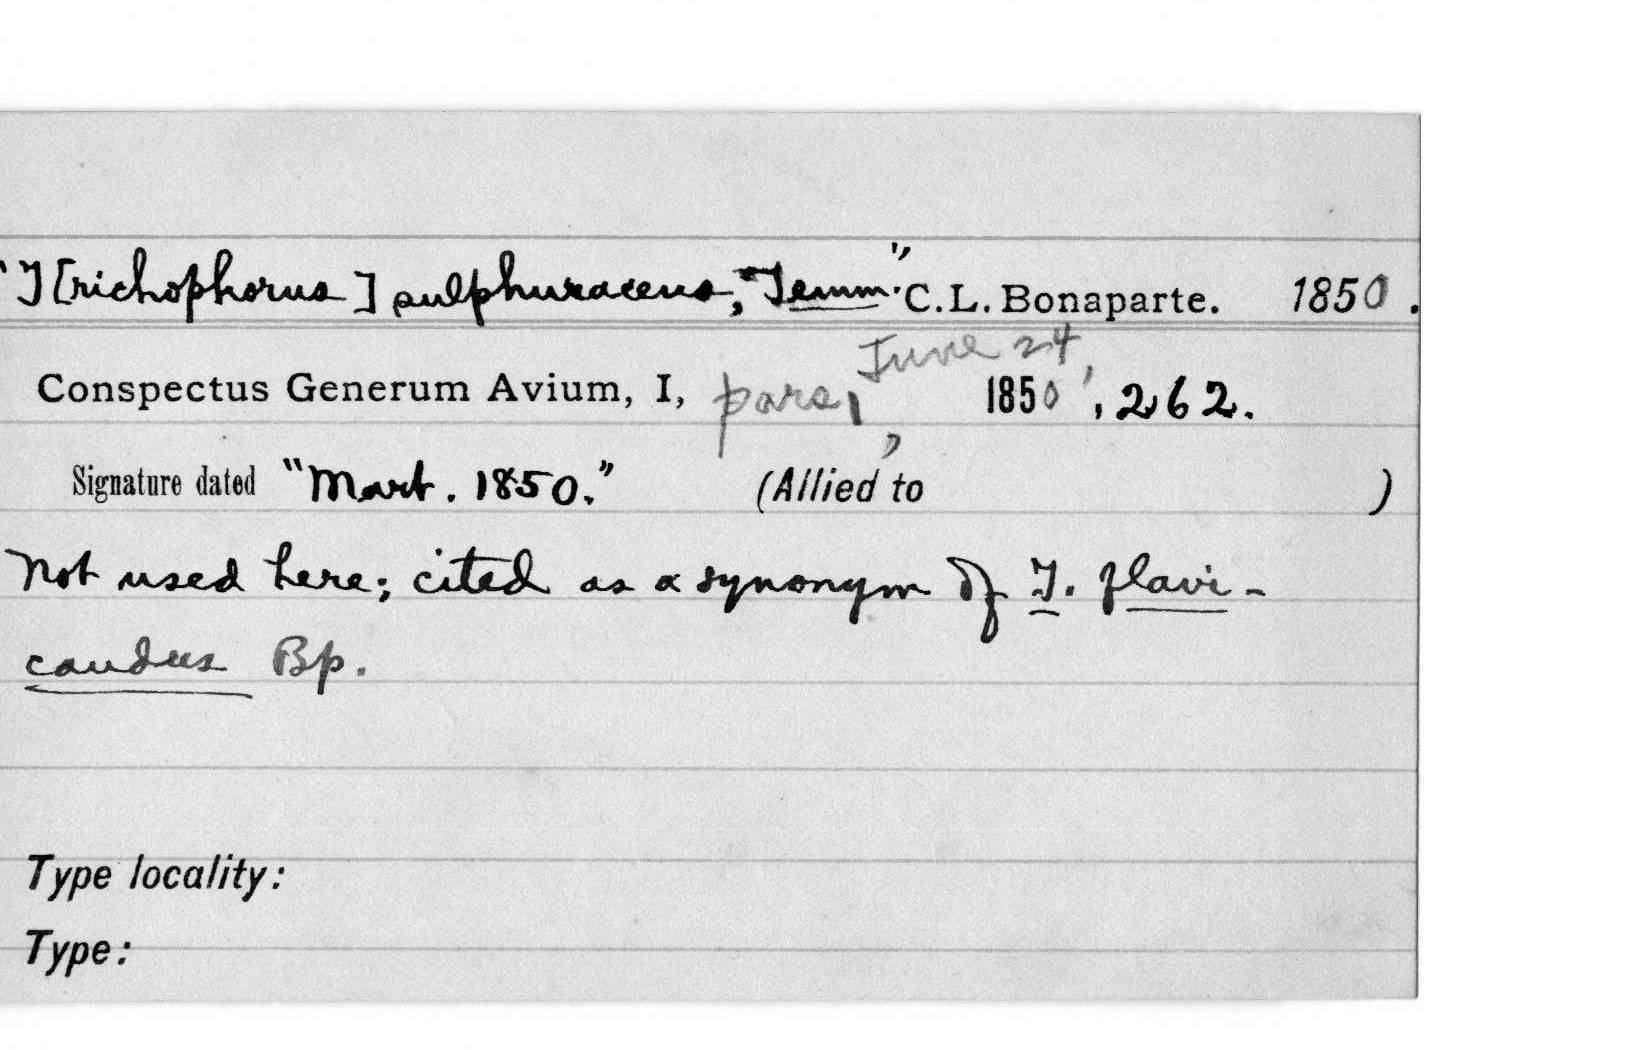 "T[richophorus] sulphuraceus, "Temm." C.L. Bonaparte. 1850.
June 24,
Conspectus Generum Avium, I, pars 1, 1850, 262.
Signature dated "Mart. 1850." (Allied to )
Not used here; cited as a synonym of T. flavi-
caudus Bp.
Type locality:
Type: